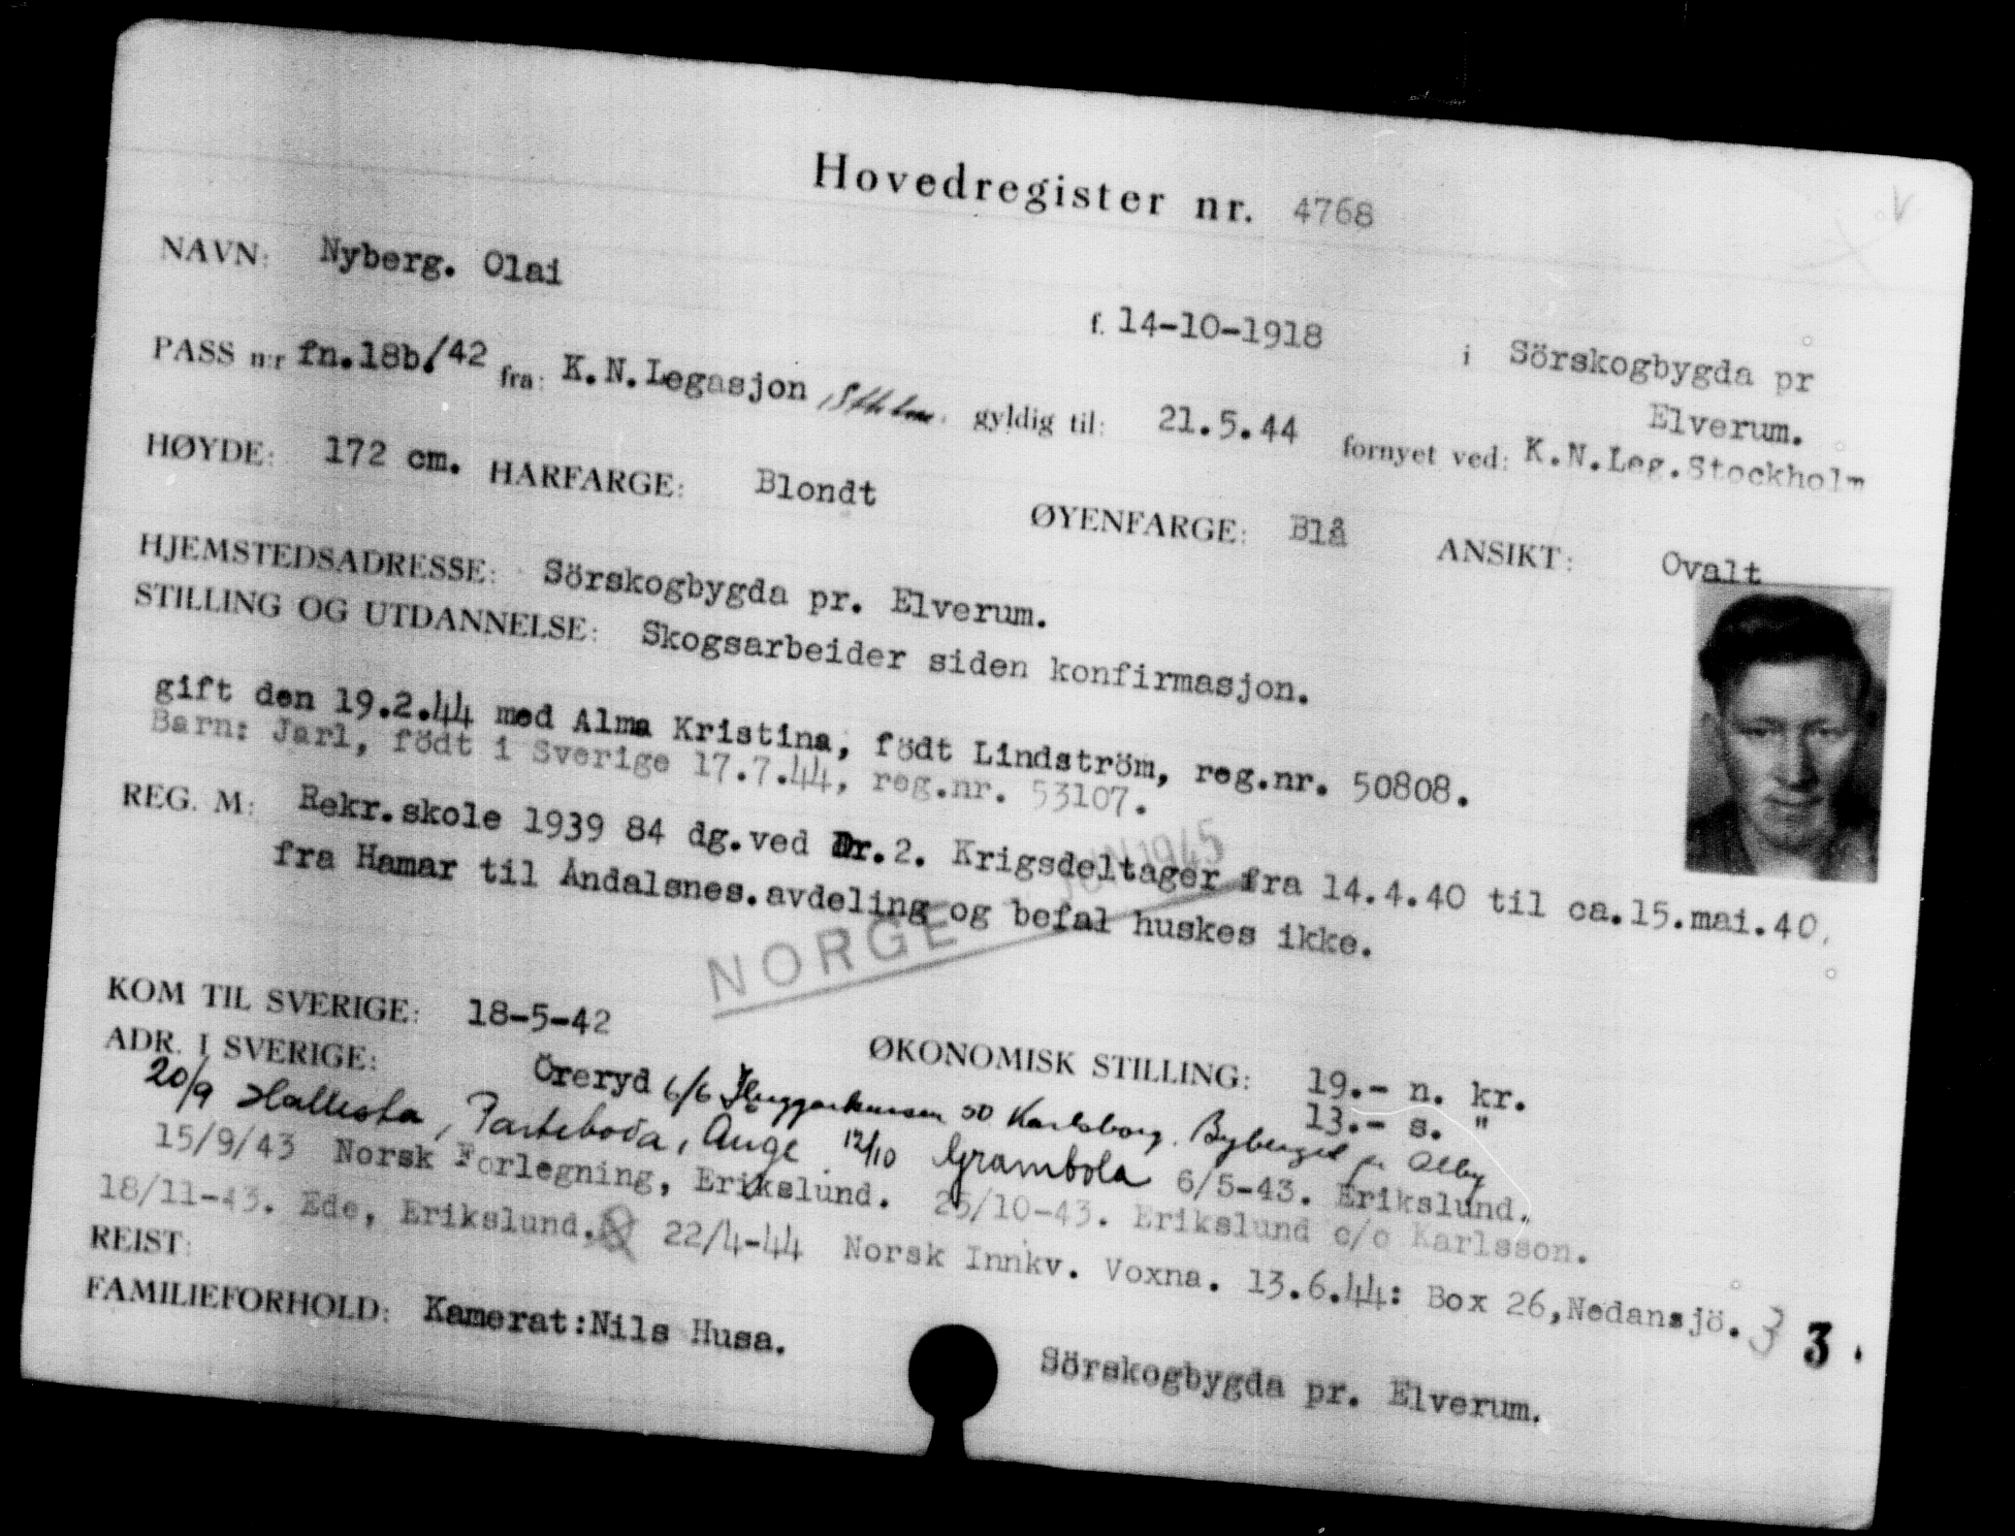 Hovedregister nr. 4768
NAVN: Nyberg. Olai
f. 14-10-1918 i Sörskogbygda pr
Elverum.
PASS n:r fn.18b./42 fra: K.N.Legasjon Sthlm. gyldig til: 21.5.44 fornyet ved: K.N.Leg.Stockholm
HØYDE: 172 cm. HÅRFARGE: Blondt ØYENFARGE: Blå ANSIKT: Ovalt
HJEMSTEDSADRESSE: Sörskogbygda pr. Elverum.
STILLING OG UTDANNELSE: Skogsarbeider siden konfirmasjon.
gift den 19.2.44 med Alma Kristina, född Lindström, reg.nr. 50808.
Barn: Jarl, födt i Sverige 17.7.44, reg.nr. 53107.
REG. M: Rekr.skole 1939 84 dg.ved Dr.2. Krigsdeltager fra 14.4.40 til ca.15.mai.40,
fra Hamar til Åndalsnes.avdeling og befal huskes ikke.
NORGE JUN 1945
KOM TIL SVERIGE: 18-5-42 ØKONOMISK STILLING: 19.- n. kr.
13.- s. "
ADR. I SVERIGE: Öreryd 6/6 50 Karlsborg. Byberget pr Alby
20/9 Hallesta, Ånge 12/10 Grambola 6/5-43. Erikslund.
15/9/43 Norsk Forlegning, Erikslund. 25/10-43. Erikslund c/o Karlsson.
18/11-43. Ede, Erikslund. 22/4-44 Norsk Innkv. Voxna. 13.6.44: Box 26,Nedansjö. 3 3
REIST:
FAMILIEFORHOLD: Kamerat:Nils Husa.
Sörskogbygda pr. Elverum.